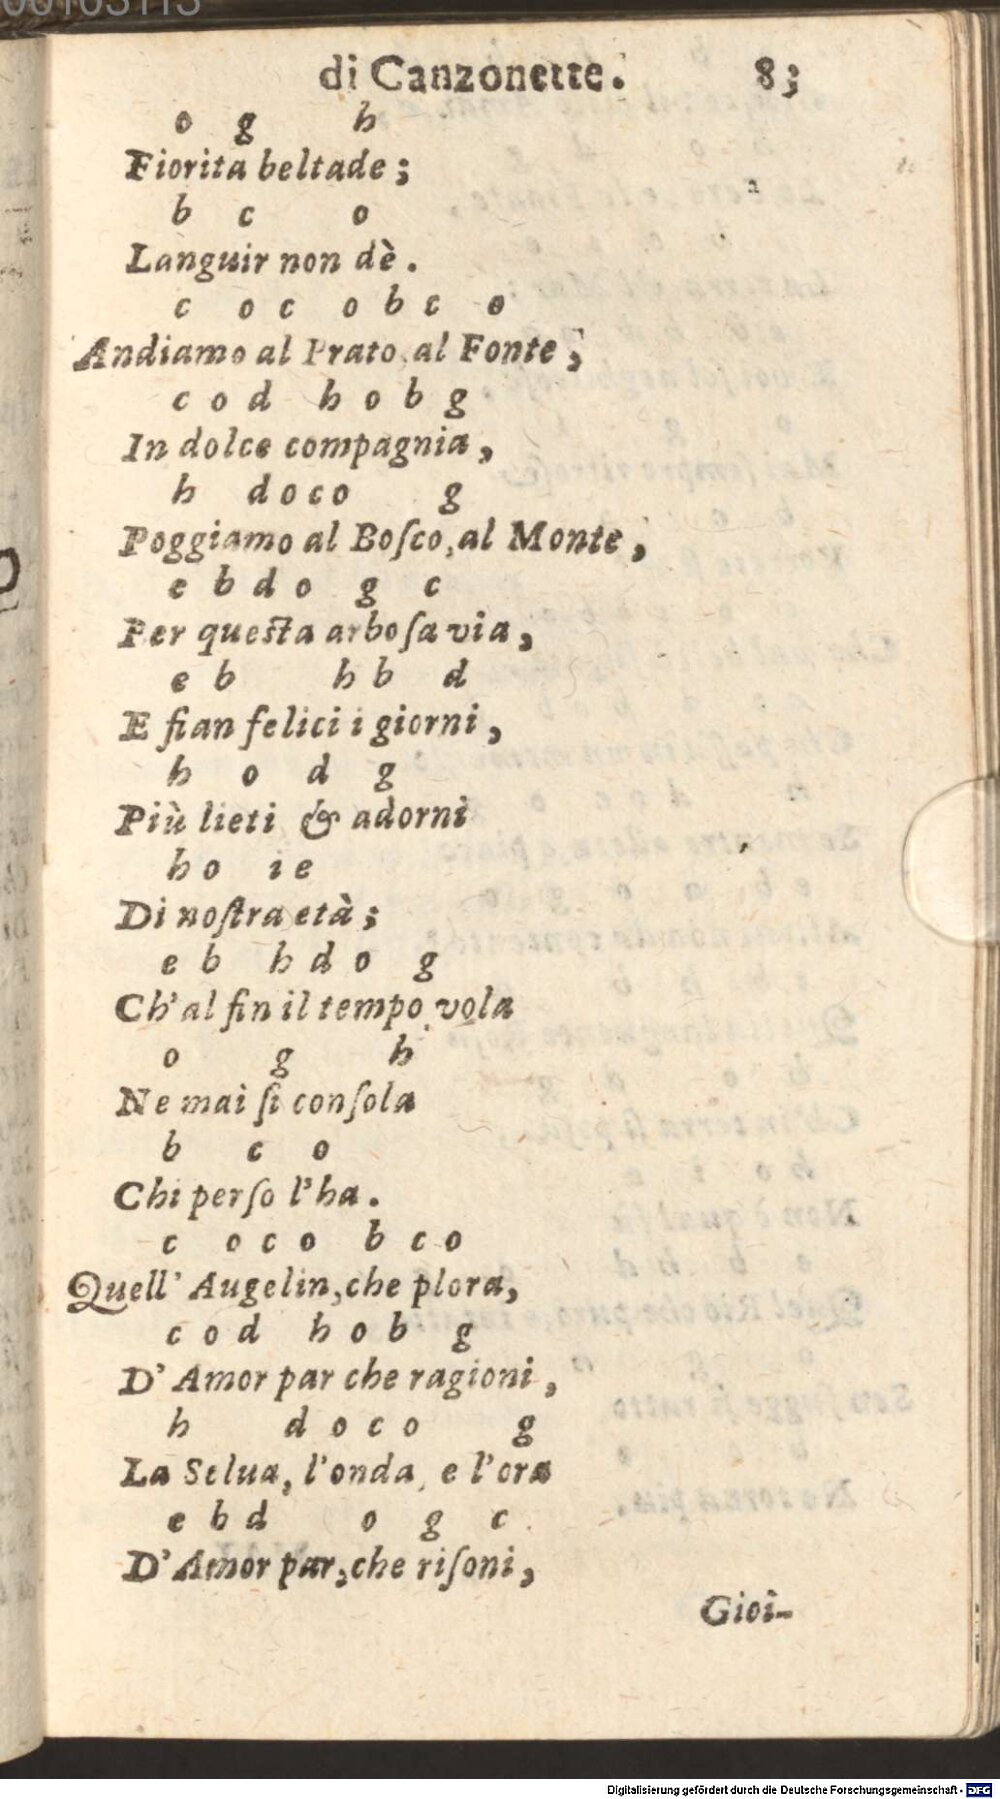 00103113
di Canzonette. 83
o g h
Fiorita beltade;
b c o
Languir non dè.
c o c o b c o
Andiamo al Prato, al Fonte,
c o d h o b g
In dolce compagnia,
h d o c o g
Poggiamo al Boſco, al Monte,
e b d o g c
Per queſta arboſa via,
e b h b d
E fian felici i giorni,
h o d g
Più lieti & adorni
h o i e
Di noſtra età;
e b h d o g
Ch' al fin il tempo vola
o g h
Ne mai ſi conſola
b c o
Chi perſo l'ha.
c o c o b c o
Quell' Augelin, che plora,
c o d h o b g
D' Amor par che ragioni,
h d o c o g
La Selua, l'onda, e l'ora
e b d o g c
D' Amor par, che riſoni,
Gioi-
Digitalisierung gefördert durch die Deutsche Forschungsgemeinschaft - DFG